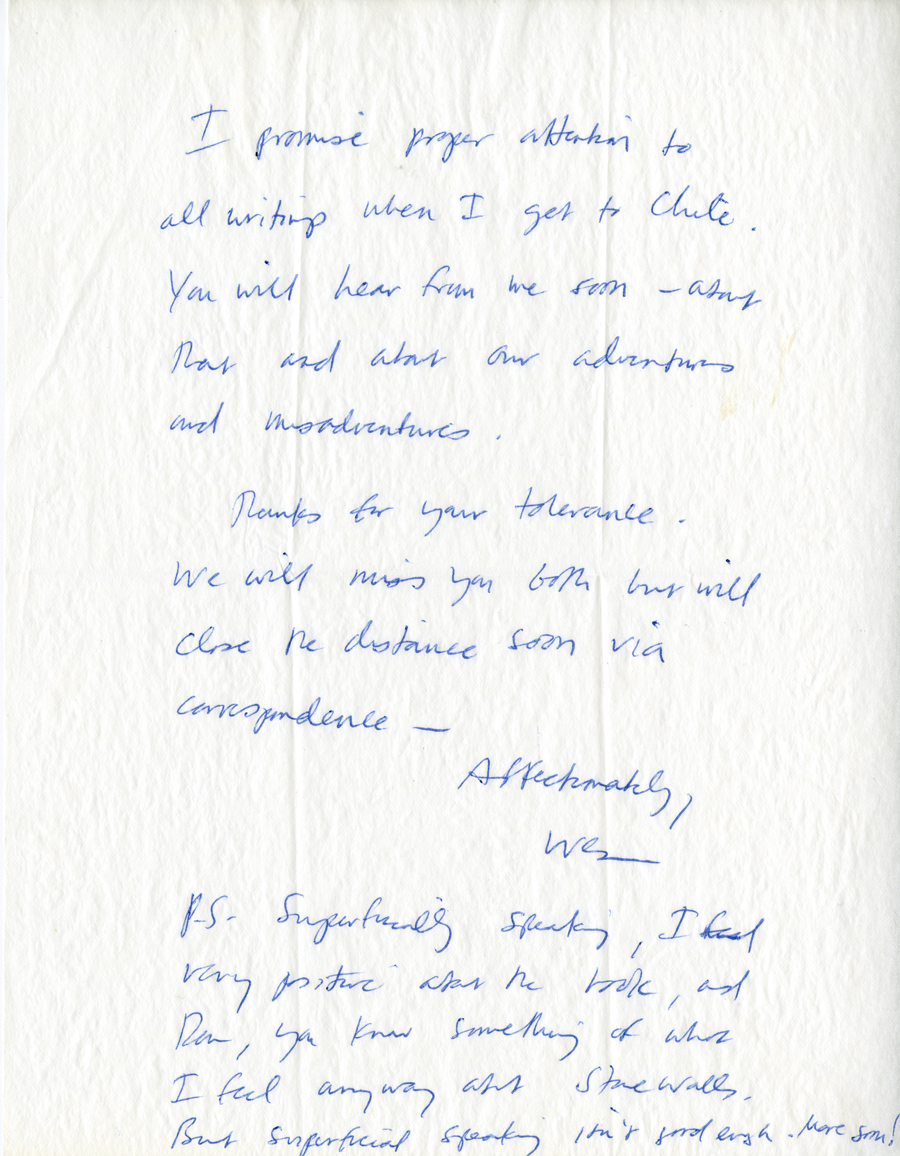 I promise proper attention to
all writings when I get to Chile.
You will hear from me soon – about
that and about our adventures
and misadventures.
Thanks for your tolerance.
We will miss you both but will
close the distance soon via
correspondence —
Affectionately,
Wes
P.S. Superficially speaking, I feel
very positive about the book, and
you know something of what
I feel anyway about Stone Walls.
But superficial speaking isn't good enough. More soon!